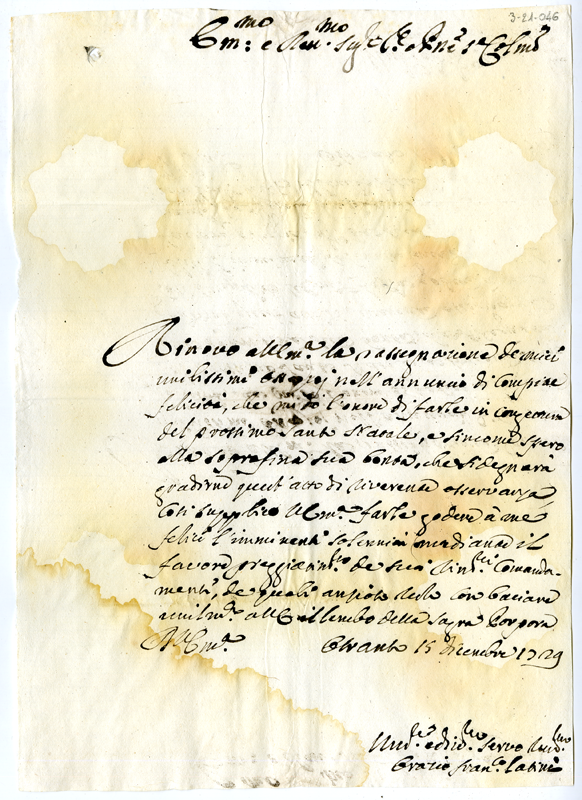 3-21-046
Em:mo e Reu.mo Sig.re
Rinovo all'Em.a la rassegnazione de miei
umilissimi ossequj nell'annuncio di compite
felicità, che mi dò l'onore di farle in congettura
del prossimo Santo Natale, e siccome spero
alla soprafina sua bontà, che si degnerà
gradirne quest'atto di riverente osservanza
così supplico l'Em.a farle godere à me
felici l'imminenti solennità mediante il
favore de suoi Comanda-
menti, de quali ansioso resto con baciare
umilm.e all'E il lembo della Sagra Porpora
All'Em.a Otranto 15 dicembre 1729
Um.e servo
Orazio Fran.co Latini